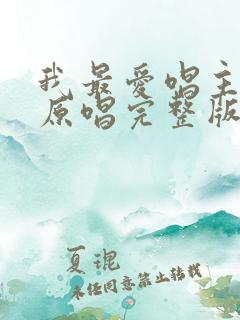 我最爱唱主
原唱完整版
夏琨
未经同意禁止转载